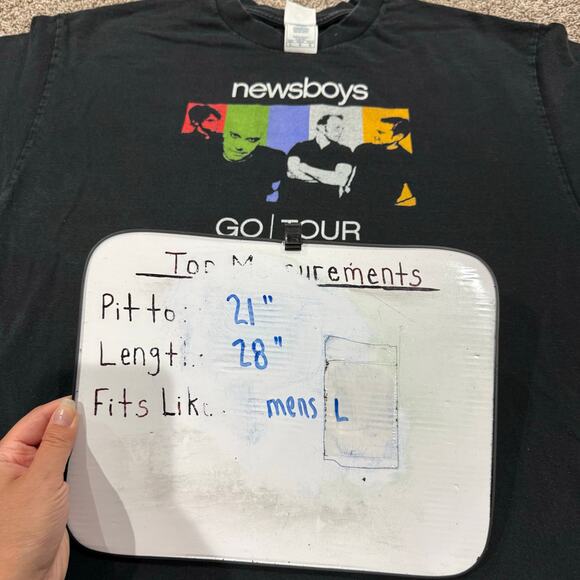 newsboys
GO | TOUR
Top M urements
Pit to: 21"
Lengt : 28"
Fits Lik . mens L